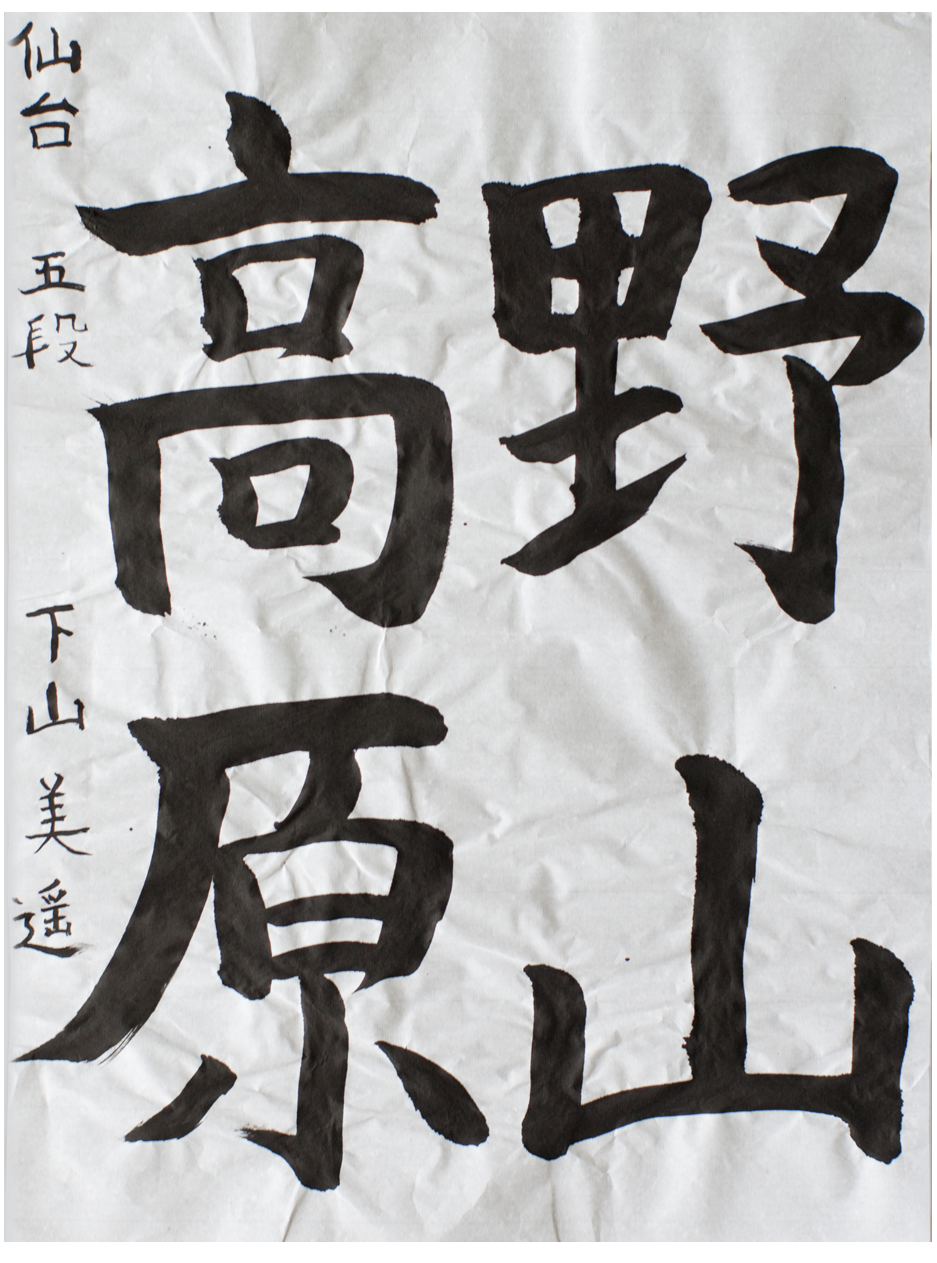 野山
高原
仙台 五段 下山美遥